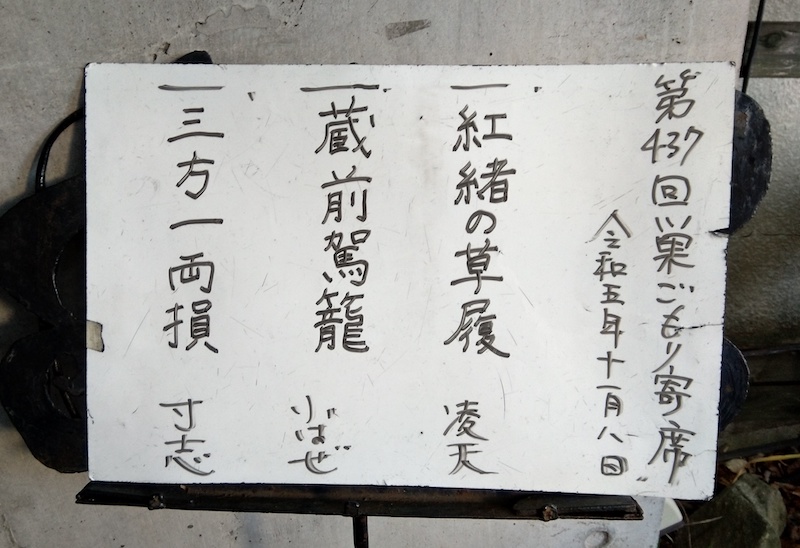 第437回 巣ごもり寄席
令和五年十一月八日
一 紅緒の草履 凌天
一 蔵前駕籠 小はぜ
一 三方一両損 寸志